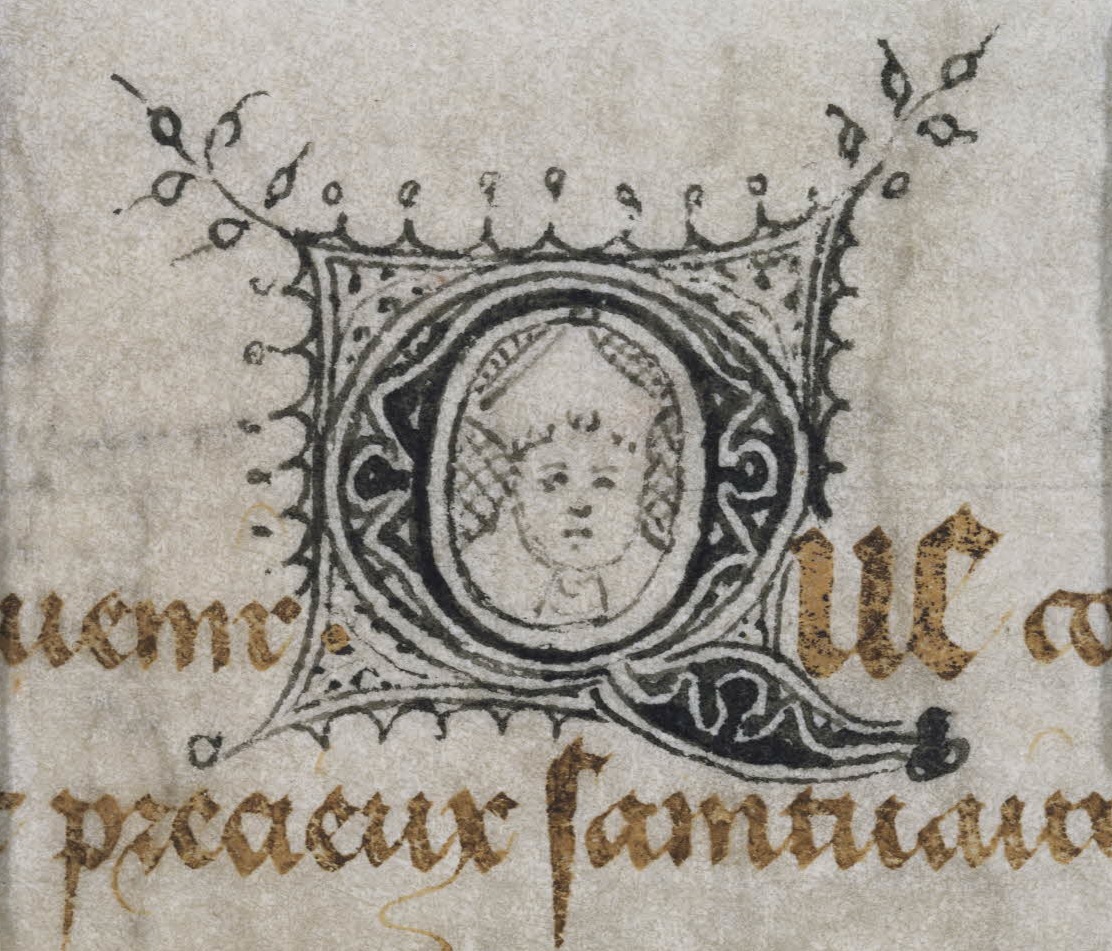 uemr. Que a
precieux samtuair